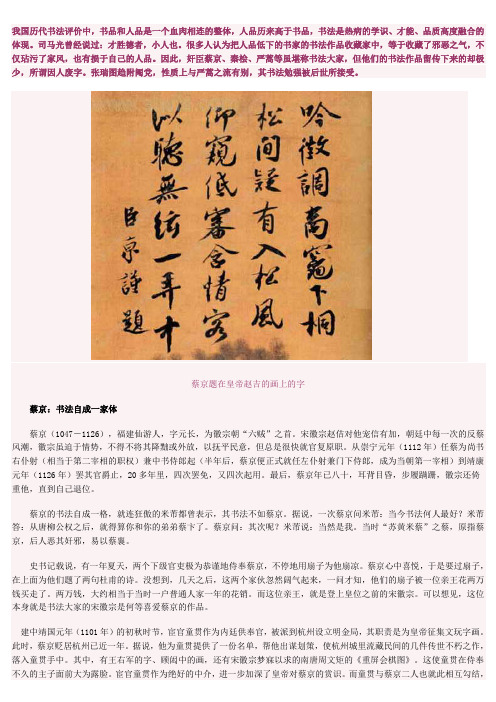 我国历代书法评价中，书品和人品是一个血肉相连的整体，人品历来高于书品，书法是热病的学识、才能、品质高度融合的
体现。司马光曾经说过：才胜德者，小人也。很多人认为把人品低下的书家的书法作品收藏家中，等于收藏了邪恶之气，不
仅玷污了家风，也有损于自己的人品。因此，奸臣蔡京、秦桧、严蒿等虽堪称书法大家，但他们的书法作品留传下来的却极
少，所谓因人废字。张瑞图趋附阉党，性质上与严蒿之流有别，其书法勉强被后世所接受。
吟徵調商竈下桐
松間疑有入松風
仰窺低審含情客
以聽無絃一弄中
臣京謹題
蔡京题在皇帝赵吉的画上的字
蔡京：书法自成一家体
蔡京（1047－1126），福建仙游人，字元长，为徽宗朝“六贼”之首。宋徽宗赵佶对他宠信有加，朝廷中每一次的反蔡
风潮，徽宗虽迫于情势，不得不将其降黜或外放，以抚平民意，但总是很快就官复原职。从崇宁元年（1112年）任蔡为尚书
右仆射（相当于第二宰相的职权）兼中书侍郎起（半年后，蔡京便正式就任左仆射兼门下侍郎，成为当朝第一宰相）到靖康
元年（1126年）罢其官爵止，20多年里，四次罢免，又四次起用。最后，蔡京年已八十，耳背目昏，步履蹒跚，徽宗还倚
重他，直到自己退位。
蔡京的书法自成一格，就连狂傲的米芾都曾表示，其书法不如蔡京。据说，一次蔡京问米芾：当今书法何人最好？米芾
答：从唐柳公权之后，就得算你和你的弟弟蔡卞了。蔡京问：其次呢？米芾说：当然是我。当时“苏黄米蔡”之蔡，原指蔡
京，后人恶其奸邪，易以蔡襄。
史书记载说，有一年夏天，两个下级官吏极为恭谨地侍奉蔡京，不停地用扇子为他扇凉。蔡京心中喜悦，于是要过扇子，
在上面为他们题了两句杜甫的诗。没想到，几天之后，这两个家伙忽然阔气起来，一问才知，他们的扇子被一位亲王花两万
钱买走了。两万钱，大约相当于当时一户普通人家一年的花销。而这位亲王，就是登上皇位之前的宋徽宗。可以想见，这位
本身就是书法大家的宋徽宗是何等喜爱蔡京的作品。
建中靖国元年（1101年）的初秋时节，宦官童贯作为内廷供奉官，被派到杭州设立明金局，其职责是为皇帝征集文玩字画。
此时，蔡京贬居杭州已近一年。据说，他为童贯提供了一份名单，帮他出谋划策，使杭州城里流藏民间的几件传世不朽之作，
落入童贯手中。其中，有王右军的字、顾闳中的画，还有宋徽宗梦寐以求的南唐周文矩的《重屏会棋图》。这使童贯在侍奉
不久的主子面前大为露脸。宦官童贯作为绝好的中介，进一步加深了皇帝对蔡京的赏识。而童贯与蔡京二人也就此相互勾结，